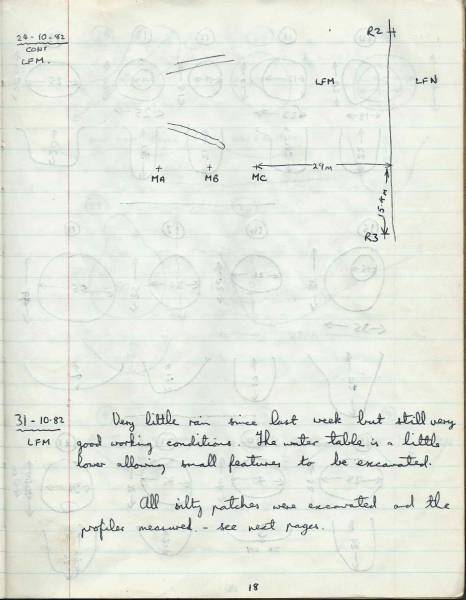 24-10-82
CONT
LFM.
R2
LFM
LFN
MA
MB
MC
29m
15.4m
R3
31-10-82
LFM
Very little rain since last week but still very
good working conditions. The water table is a little
lower allowing small features to be excavated.
All silty patches were excavated and the
profiles measured. - see next pages.
18